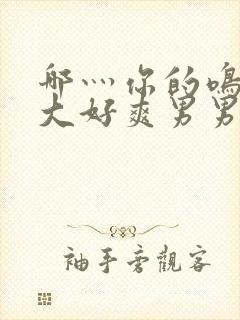 哪灬你的鸣
大好爽男男
袖手旁觀客